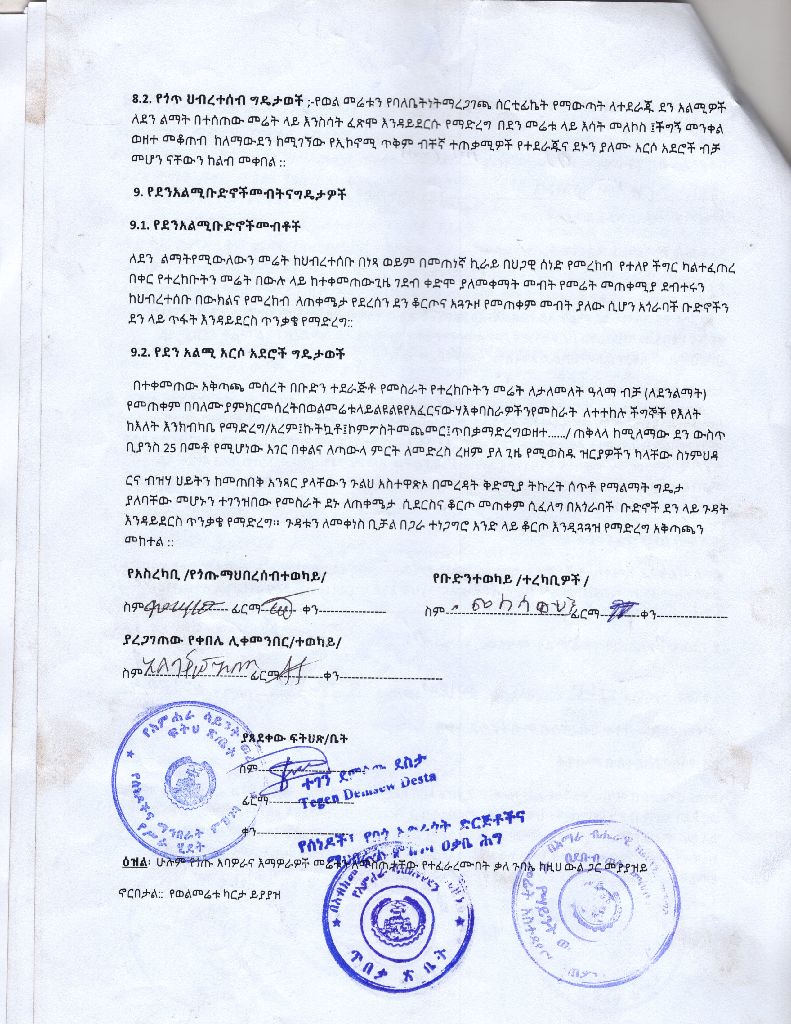 8.2. የጎጥ ህብረተሰብ ግዴታወች ;-የወል መሬቱን የባለቤትነትማረጋገጫ ሰርቲፊኬት የማውጣት ለተደራጁ ደን አልሚዎች
ለደን ልማት በተሰጠው መሬት ላይ እንስሳት ፈጽሞ እንዳይደርሱ የማድረግ በደን መሬቱ ላይ እሳት መለኮስ ፤ችግኝ መንቀል
ወዘተ መቆጠብ ከለማውደን ከሚገኘው የኢኮኖሚ ጥቅም ብቸኛ ተጠቃሚዎች የተደራጁና ደኑን ያለሙ አርሶ አደሮች ብቻ
መሆን ናቸውን ከልብ መቀበል ::
9. የደንአልሚቡድኖችመብትናግዴታዎች
9.1. የደንአልሚቡድኖችመብቶች
ለደን ልማትየሚውለውን መሬት ከህብረተሰቡ በነጻ ወይም በመጠነኛ ኪራይ በህጋዊ ሰነድ የመረከብ የተለየ ችግር ካልተፈጠረ
በቀር የተረከቡትን መሬት በውሉ ላይ ከተቀመጠውጊዜ ገደብ ቀድሞ ያለመቀማት መብት የመሬት መጠቀሚያ ደብተሩን
ከህብረተሰቡ በውክልና የመረከብ ለጠቀሜታ የደረሰን ደን ቆርጦና አጓጉዞ የመጠቀም መብት ያለው ሲሆን አጎራባች ቡድኖችን
ደን ላይ ጥፋት እንዳይደርስ ጥንቃቄ የማድረግ::
9.2. የደን አልሚ አርሶ አደሮች ግዴታወች
በተቀመጠው አቅጣጫ መሰረት በቡድን ተደራጅቶ የመስራት የተረከቡትን መሬት ለታለመለት ዓላማ ብቻ (ለደንልማት)
የመጠቀም በባለሙያምክርመሰረትበወልመሬቱላይልዩልዩየአፈርናውሃእቀባስራዎችንየመስራት ለተተከሉ ችግኞች የእለት
ከእለት እንክብካቤ የማድረግ/አረም፤ኩትኳቶ፤ኮምፖስትመጨመር፤ጥበቃማድረግወዘተ....../ ጠቅላላ ከሚለማው ደን ውስጥ
ቢያንስ 25 በመቶ የሚሆነው አገር በቀልና ለጣውላ ምርት ለመድረስ ረዘም ያለ ጊዜ የሚወስዱ ዝርያዎችን ካላቸው ስነምህዳ
ርና ብዝሃ ህይትን ከመጠበቅ አንጻር ያላቸውን ጉልህ አስተዋጽኦ በመረዳት ቅድሚያ ትኩረት ሰጥቶ የማልማት ግዴታ
ያለባቸው መሆኑን ተገንዝበው የመስራት ደኑ ለጠቀምታ ሲደርስና ቆርጦ መጠቀም ሲፈለግ በአጎራባች ቡድኖች ደን ላይ ጉዳት
እንዳይደርስ ጥንቃቄ የማድረግ። ጉዳቱን ለመቀነስ ቢቻል በጋራ ተነጋግሮ አንድ ላይ ቆርጦ እንዲጓጓዝ የማድረግ አቅጣጫን
መከተል ::
የአስረካቢ /የጎጡማህበረሰብተወካይ/ የቡድንተወካይ /ተረካቢዎች /
ስም ፊርማ ቀን ስም ፊርማ ቀን
ያረጋገጠው የቀበሌ ሊቀመንበር/ተወካይ/
ስም ፊርማ ቀን
ያጸደቀው ፍትህጽ/ቤት
ስም
ተገን ደምሰው ደስታ
Tegen Demsew Desta
ፊርማ
ቀን
ዕዝል: ሁሉም የጎጡ አባዎራና እማዎራዎች መሬቱን ስለመስጠታቸው የተፈራረሙበት ቃለ ጉባኤ ከዚህ ውል ጋር መያያዝይ
ኖርበታል:: የወልመሬቱ ካርታ ይያያዝ
ጥበቃ ጽ ቤት